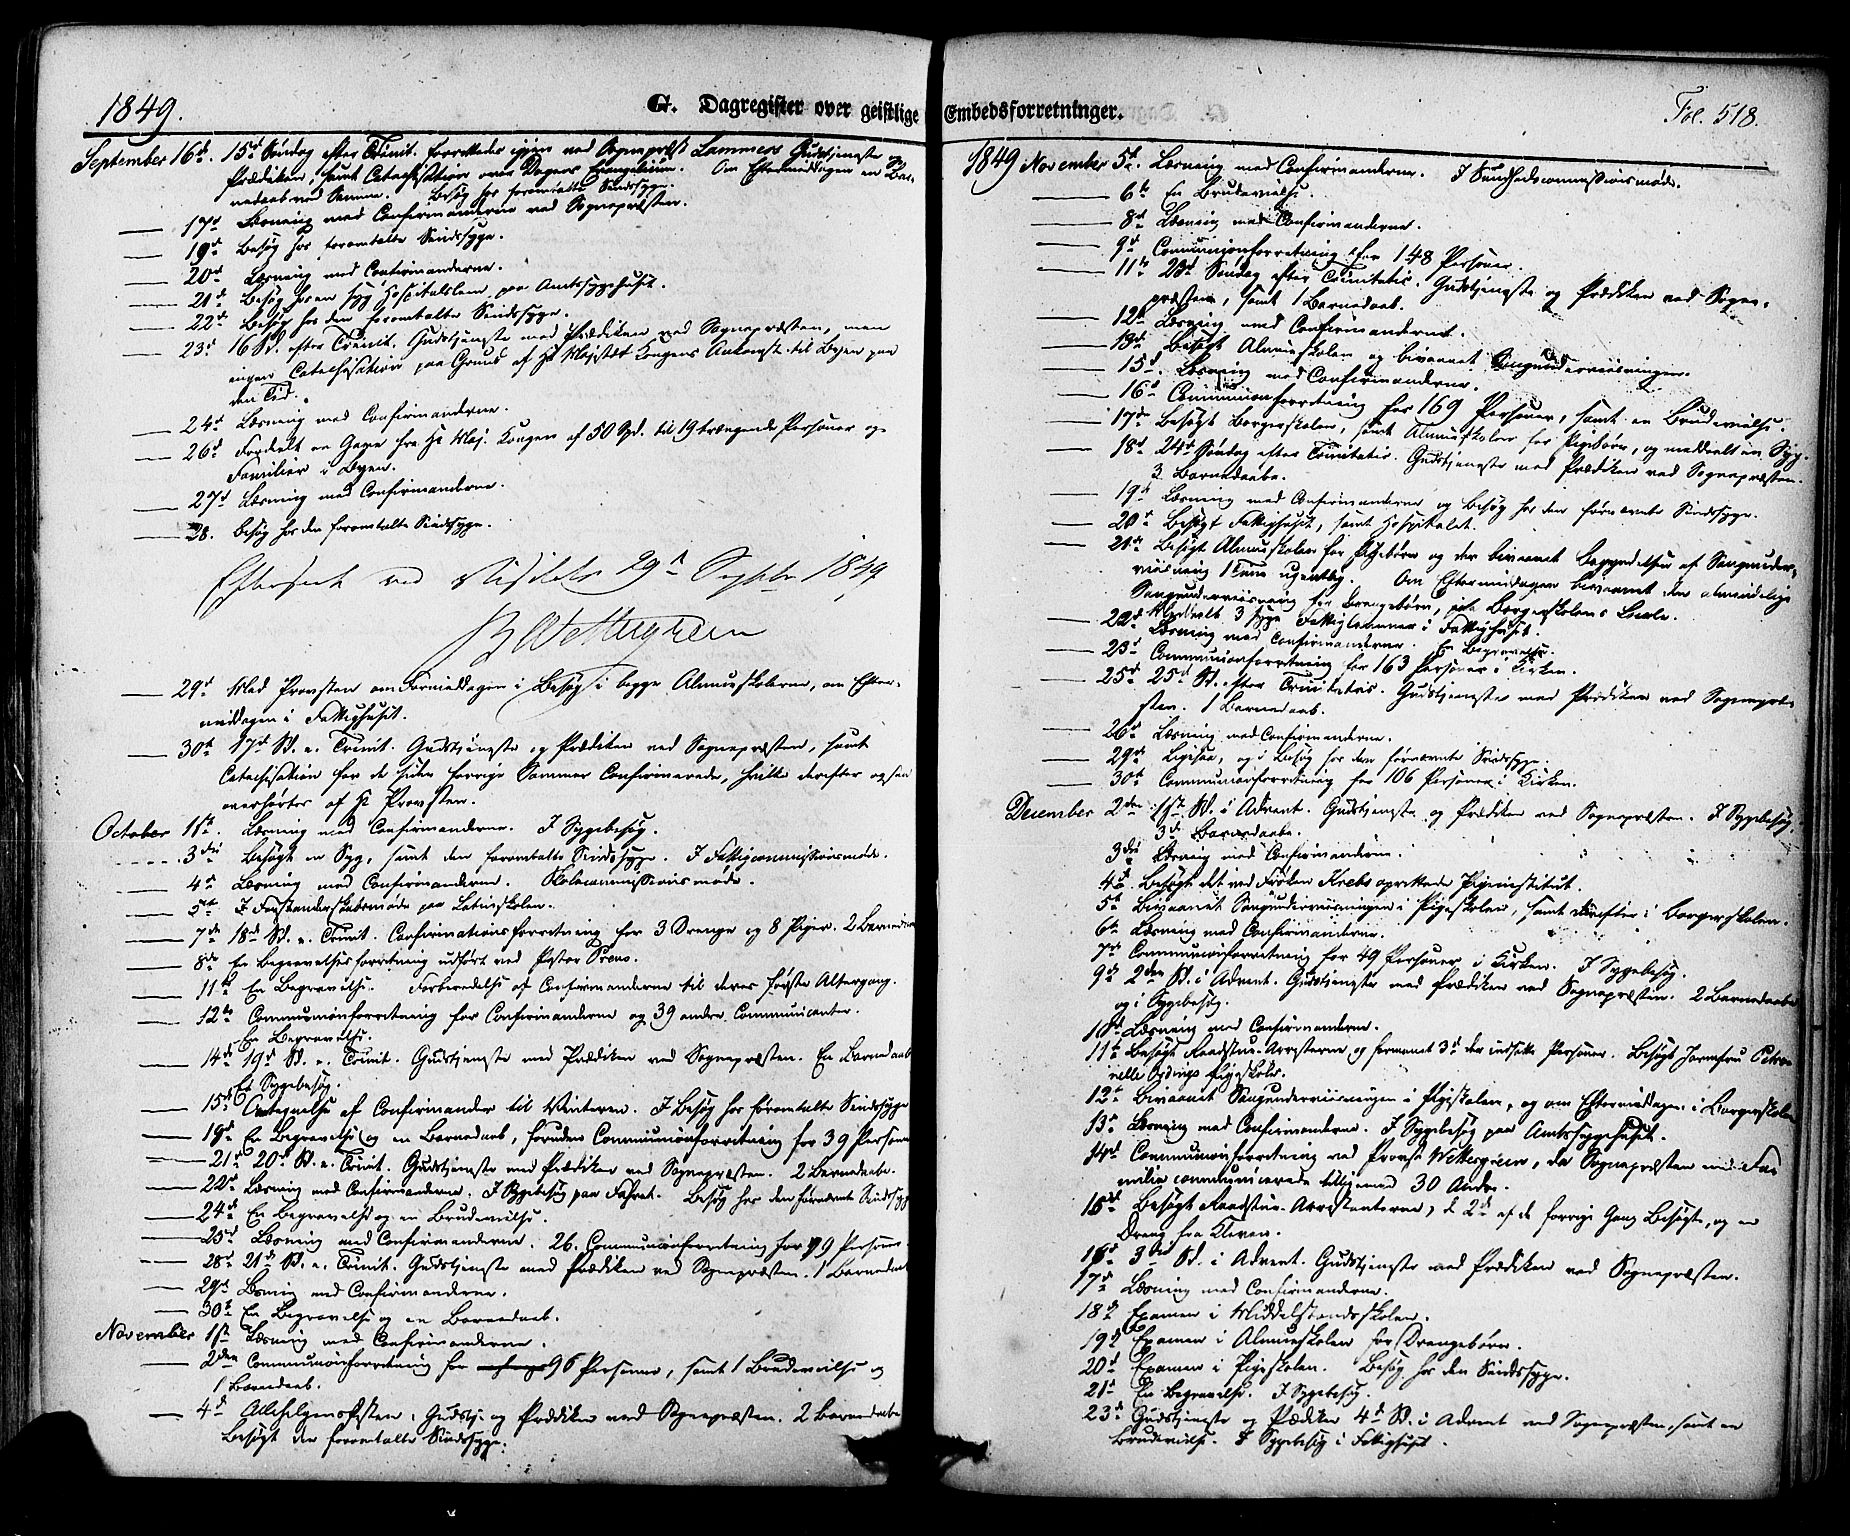 1849.
G. Dagregister over geistlige
September 16de. 15de Søndag efter Trinit. forrettedes igjen ved Sognepræst Lammers Gudstjeneste og
Prædiken, samt Catechisation over Dagens Evangelium. Om Eftermiddagen en Bar-
nedaab ved Samme. Besøg hos foromtalte Sindssyge.
— 17de Læsning med Confirmanderne ved Sognepræsten.
— 19de Besøg hos foromtalte Sindssyge.
— 20de Læsning med Confirmanderne.
— 21de Besøg hos en syg Hospitalslem paa Amtssygehuset.
— 22de Besøg hos den foromtalte Sindssyge.
— 23de 16 Sd. efter Trinit. Gudstjeneste med Prædiken ved Sognepræsten, men
ingen Catechisation paa Grund af Hs Majestæt Kongens Ankomst til Byen paa
den Tid.
— 24de Læsning med Confirmanderne.
— 26de Fordelt en Gave fra Hs Maj. Kongen af 50 Spd. til 19 trængende Personer og
Familier i Byen.
— 27de Læsning med Confirmanderne.
— 28. Besøg hos den foromtalte Sindssyge.
Efterseet ved Visitats 29de Septbr 1849
Wettergreen
— 29de Med Provsten om Formiddagen i Besøg i begge Almueskolerne, om Efter-
middagen i Fattighuset.
— 30te 17de Sd. e. Trinit. Gudstjeneste og Prædiken ved Sognepræsten, samt
Catechisation for de siden forrige Sommer Confirmerede, hvilke derefter ogsaa
overhørtes af Hr Provsten.
October 1ste. Læsning med Confirmanderne. I Sygebesøg.
3die Besøgt en Syg, samt den foromtalte Sindssyge. I Fattigcommissionsmøde.
— 4de Læsning med Confirmanderne. Skolecommissionsmøde.
— 5te I Forstanderskabsmøde paa Latinskolen.
— 7de 18de Sd. e. Trinit. Confirmationsforretning for 3 Drenge og 8 Piger. 2 Barnedaabe
— 8de En Begravelsesforretning udført ved Pastor
— 11te En Begravelse. Forberedelse af Confirmanderne til deres første Altergang.
— 12te Communionforretning for Confirmanderne og 39 andre Communicanter.
En Begravelse.
— 14de 19de Sd. e. Trinit. Gudstjeneste med Prædiken ved Sognepræsten. En Barnedaab
Et Sygebesøg.
— 15de Antegnelse af Confirmander til Vinteren. I Besøg hos foromtalte Sindssyge
— 19de En Begravelse og en Barnedaab, foruden Communionforretning for 39 Personer
— 21de 20de Sd. e. Trinit. Gudstjeneste med Prædiken ved Sognepræsten. 2 Barnedaabe.
— 22de Læsning med Confirmanderne. I Sygebesøg paa Besøg hos den fornævnte Sindssyge
— 24de En Begravelse og en Brudevielse.
— 25de Læsning med Confirmanderne. 26. Communionforretning for 99 Personer
— 28de 21de Sd. e. Trinit. Gudstjeneste med Prædiken ved Sognepræsten. 1 Barnedaab
— 29de Læsning med Confirmanderne.
— 30te En Begravelse og en Barnedaab.
November 1ste Læsning med Confirmanderne.
— 2den Communionforretning for 96 Personer, samt 1 Brudevielse og
1 Barnedaab.
— 4de Allehelgensfesten, Gudstj. og Prædiken ved Sognepræsten. 2 Barnedaabe
Besøgt den foromtalte Sindssyge.
Embedsforretninger.
Fol. 518.
1849 November 5te. Læsning med Confirmanderne. I Sundhedscommissionsmøde.
— 6te En Brudevielse.
— 8de Læsning med Confirmanderne.
— 9de Communionforretning for 148 Personer.
— 11te 23de Søndag efter Trinitatis. Gudstjeneste og Prædiken ved Sogne-
præsten, samt 1 Barnedaab.
— 12te Læsning med Confirmanderne.
— 13de Besøgt Almueskolen og bivaanet Sangunderviisningen.
— 15de. Læsning med Confirmanderne.
— 16de Communionforretning for 169 Personer, samt en Brudevielse.
— 17de Besøgt Borgerskolen, samt Almueskolen for Pigebørn, og meddeelt en Syg.
— 18de 24de Søndag efter Trinitatis. Gudstjeneste med Prædiken ved Sognepræsten.
3 Barnedaabe.
— 19de Læsning med Confirmanderne og Besøg hos den fornævnte Sindssyge.
— 20de Besøgt Fattighuset, samt Hospitalet.
— 21de Besøgt Almueskolen for Pigebørn og der bivaanet Begyndelsen af Sangunder-
viisning 1 Time ugentlig. Om Eftermiddagen bivaanet den almindelige
Sangunderviisning for Drengebørn, paa Borgerskolens Locale.
— 22de Meddeelt 3 syge Fattiglemmer i Fattighuset.
Læsning med Confirmanderne. En Begravelse.
— 23de Communionforretning for 163 Personer i Kirken.
— 25de 25de Sd. efter Trinitatis. Gudstjeneste med Prædiken ved Sognepræ-
sten. 1 Barnedaab.
— 26de Læsning med Confirmanderne.
— 29de Ligesaa, og i Besøg hos den fornævnte Sindssyge.
— 30te Communionforretning for 106 Personer i Kirken.
December 2den 1ste Sd. i Advent. Gudstjeneste og Prædiken ved Sognepræsten. I Sygebesøg.
3 Barnedaabe.
3die Læsning med Confirmanderne.
4de. Besøgt det ved Frøken Krebs oprettede Pigeinstitut.
5te Bivaanet Sangunderviisningen i Pigeskolen, samt derefter i Borgerskolen.
6te Læsning med Confirmanderne.
7de Communionforretning for 49 Personer i Kirken. I Sygebesøg.
9de 2den Sd. i Advent. Gudstjeneste med Prædiken ved Sognepræsten. 2 Barnedaabe
og i Sygebesøg.
10de Læsning med Confirmanderne.
11te Besøgt Raadstue-Arresterne og fornemmet 3 der indsatte Personer. Besøgt Jomfru Petro-
nelle Pigeskole.
12te Bivaanet Sangunderviisningen i Pigeskolen, og om Eftermiddagen i Borgerskolen
13de Læsning med Confirmanderne. I Sygebesøg paa Amtssygehuset.
14de Communionforretning ved Provst Wettergreen, da Sognepræsten med Fa-
milie communicerede tilligemed 30 Andre.
15de Besøgt Raadstue-Arrestanterne, de 2de af de forrige Gang Besøgte, og en
Dreng fra Kleven.
16de 3die Sd. i Advent. Gudstjeneste med Prædiken ved Sognepræsten.
17de Læsning med Confirmanderne.
18de Examen i Middelstandsskolen.
19de Examen i Almueskolen for Drengebørn.
20de Examen i Pigeskolen. Besøg hos den Sindssyge.
21de En Begravelse. I Sygebesøg.
23de Gudstjeneste og Prædiken 4de Sd. i Advent ved Sognepræsten, samt en
Brudevielse. I Sygebesøg i Fattighuset.